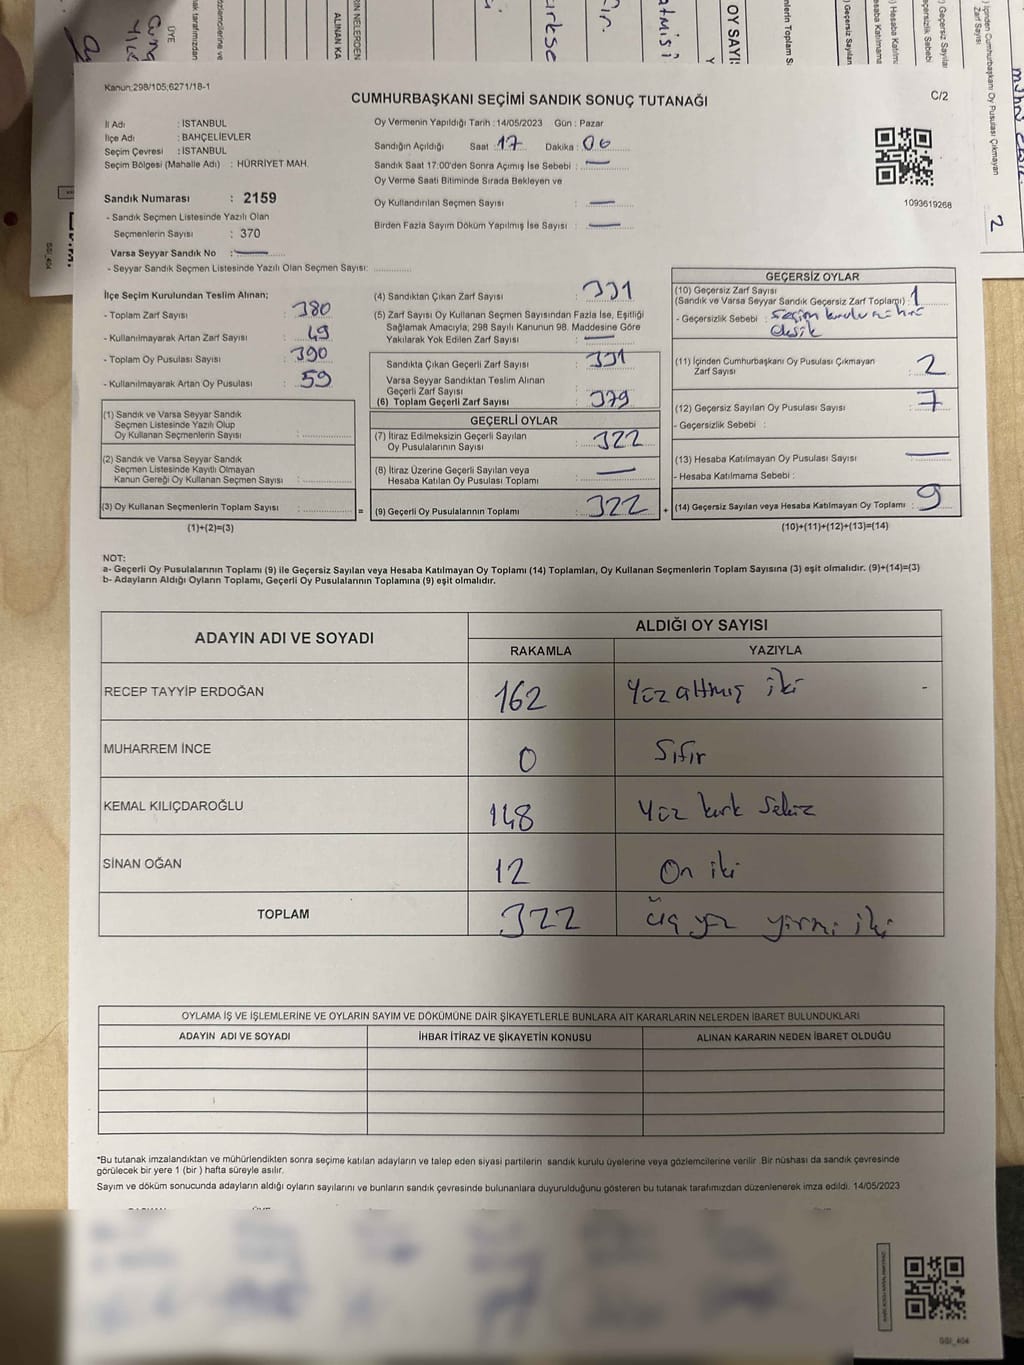 Kanun:298/105;6271/18-1
CUMHURBAŞKANI SEÇİMİ SANDIK SONUÇ TUTANAĞI
C/2
İl Adı : İSTANBUL
İlçe Adı : BAHÇELİEVLER
Seçim Çevresi : İSTANBUL
Seçim Bölgesi (Mahalle Adı) : HÜRRİYET MAH.
Sandık Numarası : 2159
- Sandık Seçmen Listesinde Yazılı Olan
Seçmenlerin Sayısı : 370
Varsa Seyyar Sandık No : —
- Seyyar Sandık Seçmen Listesinde Yazılı Olan Seçmen Sayısı: ..............
Oy Vermenin Yapıldığı Tarih : 14/05/2023 Gün : Pazar
Sandığın Açıldığı Saat : 17 Dakika : 06
Sandık Saat 17:00'den Sonra Açımış İse Sebebi : —
Oy Verme Saati Bitiminde Sırada Bekleyen ve
Oy Kullandırılan Seçmen Sayısı : —
Birden Fazla Sayım Döküm Yapılmış İse Sayısı : —
1093619268
İlçe Seçim Kurulundan Teslim Alınan;
- Toplam Zarf Sayısı : 380
- Kullanılmayarak Artan Zarf Sayısı : 49
- Toplam Oy Pusulası Sayısı : 390
- Kullanılmayarak Artan Oy Pusulası : 59
(1) Sandık ve Varsa Seyyar Sandık
Seçmen Listesinde Yazılı Olup
Oy Kullanan Seçmenlerin Sayısı : ..............
(2) Sandık ve Varsa Seyyar Sandık
Seçmen Listesinde Kayıtlı Olmayan
Kanun Gereği Oy Kullanan Seçmen Sayısı : ..............
(3) Oy Kullanan Seçmenlerin Toplam Sayısı : ..............
(1)+(2)=(3)
=
(4) Sandıktan Çıkan Zarf Sayısı : 331
(5) Zarf Sayısı Oy Kullanan Seçmen Sayısından Fazla İse, Eşitliği
Sağlamak Amacıyla, 298 Sayılı Kanunun 98. Maddesine Göre
Yakılarak Yok Edilen Zarf Sayısı : —
Sandıkta Çıkan Geçerli Zarf Sayısı : 331
Varsa Seyyar Sandıktan Teslim Alınan
Geçerli Zarf Sayısı :
(6) Toplam Geçerli Zarf Sayısı : 329
GEÇERLİ OYLAR
(7) İtiraz Edilmeksizin Geçerli Sayılan
Oy Pusulalarının Sayısı : 322
(8) İtiraz Üzerine Geçerli Sayılan veya
Hesaba Katılan Oy Pusulası Toplamı : —
(9) Geçerli Oy Pusulalarının Toplamı : 322
+
GEÇERSİZ OYLAR
(10) Geçersiz Zarf Sayısı
(Sandık ve Varsa Seyyar Sandık Geçersiz Zarf Toplamı) : 1
- Geçersizlik Sebebi : seçim kurulu mührü
eksik
(11) İçinden Cumhurbaşkanı Oy Pusulası Çıkmayan
Zarf Sayısı : 2
(12) Geçersiz Sayılan Oy Pusulası Sayısı : 7
- Geçersizlik Sebebi :
(13) Hesaba Katılmayan Oy Pusulası Sayısı : —
- Hesaba Katılmama Sebebi :
(14) Geçersiz Sayılan veya Hesaba Katılmayan Oy Toplamı : 9
(10)+(11)+(12)+(13)=(14)
NOT:
a- Geçerli Oy Pusulalarının Toplamı (9) ile Geçersiz Sayılan veya Hesaba Katılmayan Oy Toplamı (14) Toplamları, Oy Kullanan Seçmenlerin Toplam Sayısına (3) eşit olmalıdır. (9)+(14)=(3)
b- Adayların Aldığı Oyların Toplamı, Geçerli Oy Pusulalarının Toplamına (9) eşit olmalıdır.
ADAYIN ADI VE SOYADI
ALDIĞI OY SAYISI
RAKAMLA YAZIYLA
RECEP TAYYİP ERDOĞAN 162 Yüz altmış iki
MUHARREM İNCE 0 Sıfır
KEMAL KILIÇDAROĞLU 148 Yüz kırk sekiz
SİNAN OĞAN 12 On iki
TOPLAM 322 üç yüz yirmi iki
OYLAMA İŞ VE İŞLEMLERİNE VE OYLARIN SAYIM VE DÖKÜMÜNE DAİR ŞİKAYETLERLE BUNLARA AİT KARARLARIN NELERDEN İBARET BULUNDUKLARI
ADAYIN ADI VE SOYADI İHBAR İTİRAZ VE ŞİKAYETİN KONUSU ALINAN KARARIN NEDEN İBARET OLDUĞU
*Bu tutanak imzalandıktan ve mühürlendikten sonra seçime katılan adayların ve talep eden siyasi partilerin sandık kurulu üyelerine veya gözlemcilerine verilir .Bir nüshası da sandık çevresinde
görülecek bir yere 1 (bir ) hafta süreyle asılır.
Sayım ve döküm sonucunda adayların aldığı oyların sayılarını ve bunların sandık çevresinde bulunanlara duyurulduğunu gösteren bu tutanak tarafımızdan düzenlenerek imza edildi. 14/05/2023
GSI_404